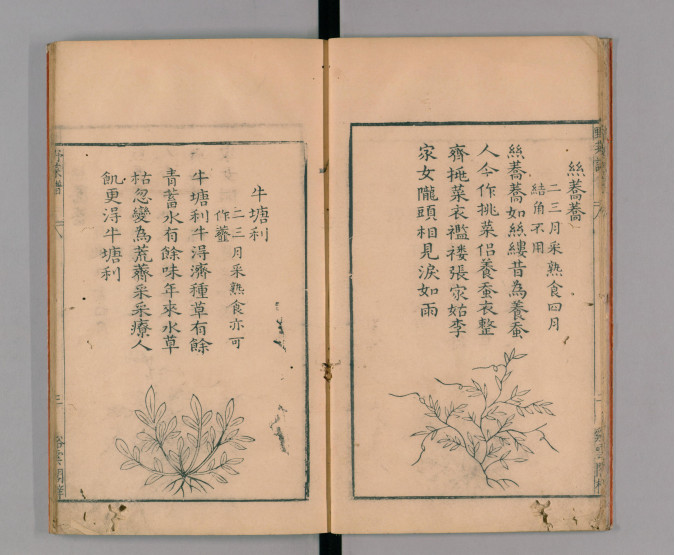 絲蕎蕎
二三月采熟食四月
結角不用
絲蕎蕎如絲縷昔為養蚕
人今作挑菜侶養蚕衣整
齊挑菜衣襤褸張家姑李
家女隴頭相見淚如雨
牛塘利
二三月采熟食亦可
作虀
牛塘利牛得濟種草有餘
青蓄水有餘味年來水草
枯忽變為荒薺采采療人
飢更得牛塘利